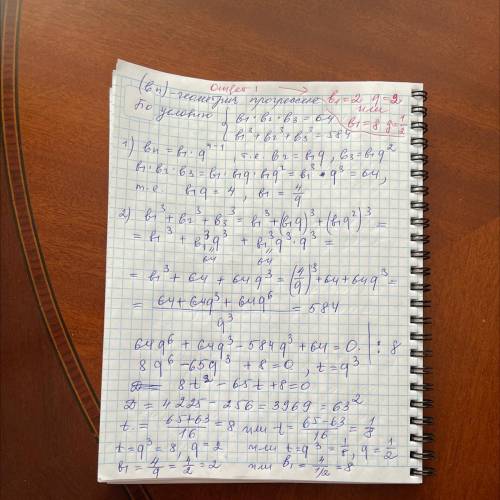 Ответ: → b₁=2 q=2
(bn)-геометрич. прогрессия или
По условию { b₁·b₂·b₃=64 b₁=8 q=1/2
{ b₁³+b₂³+b₃³=584
1) bn=b₁·q^(n-1), т.е. b₂=b₁q, b₃=b₁q²
b₁·b₂·b₃=b₁·b₁q·b₁q²=b₁³·q³=64,
т.е. b₁q=4, b₁=4/q
2) b₁³+b₂³+b₃³=b₁³+(b₁q)³+(b₁q²)³=
=b₁³+b₁³q³+b₁³q³·q³=
64 64
=b₁³+64+64q³=(4/q)³+64+64q³=
=(64+64q³+64q⁶)/q³=584
64q⁶+64q³-584q³+64=0 |:8
8q⁶-65q³+8=0, t=q³
8t²-65t+8=0
D=4225-256=3969=63²
t=(65+63)/16=8 или t=(65-63)/16=1/8
t=q³=8, q=2 или t=q³=1/8, q=1/2
b₁=4/q=4/2=2 или b₁=4/1/2=8